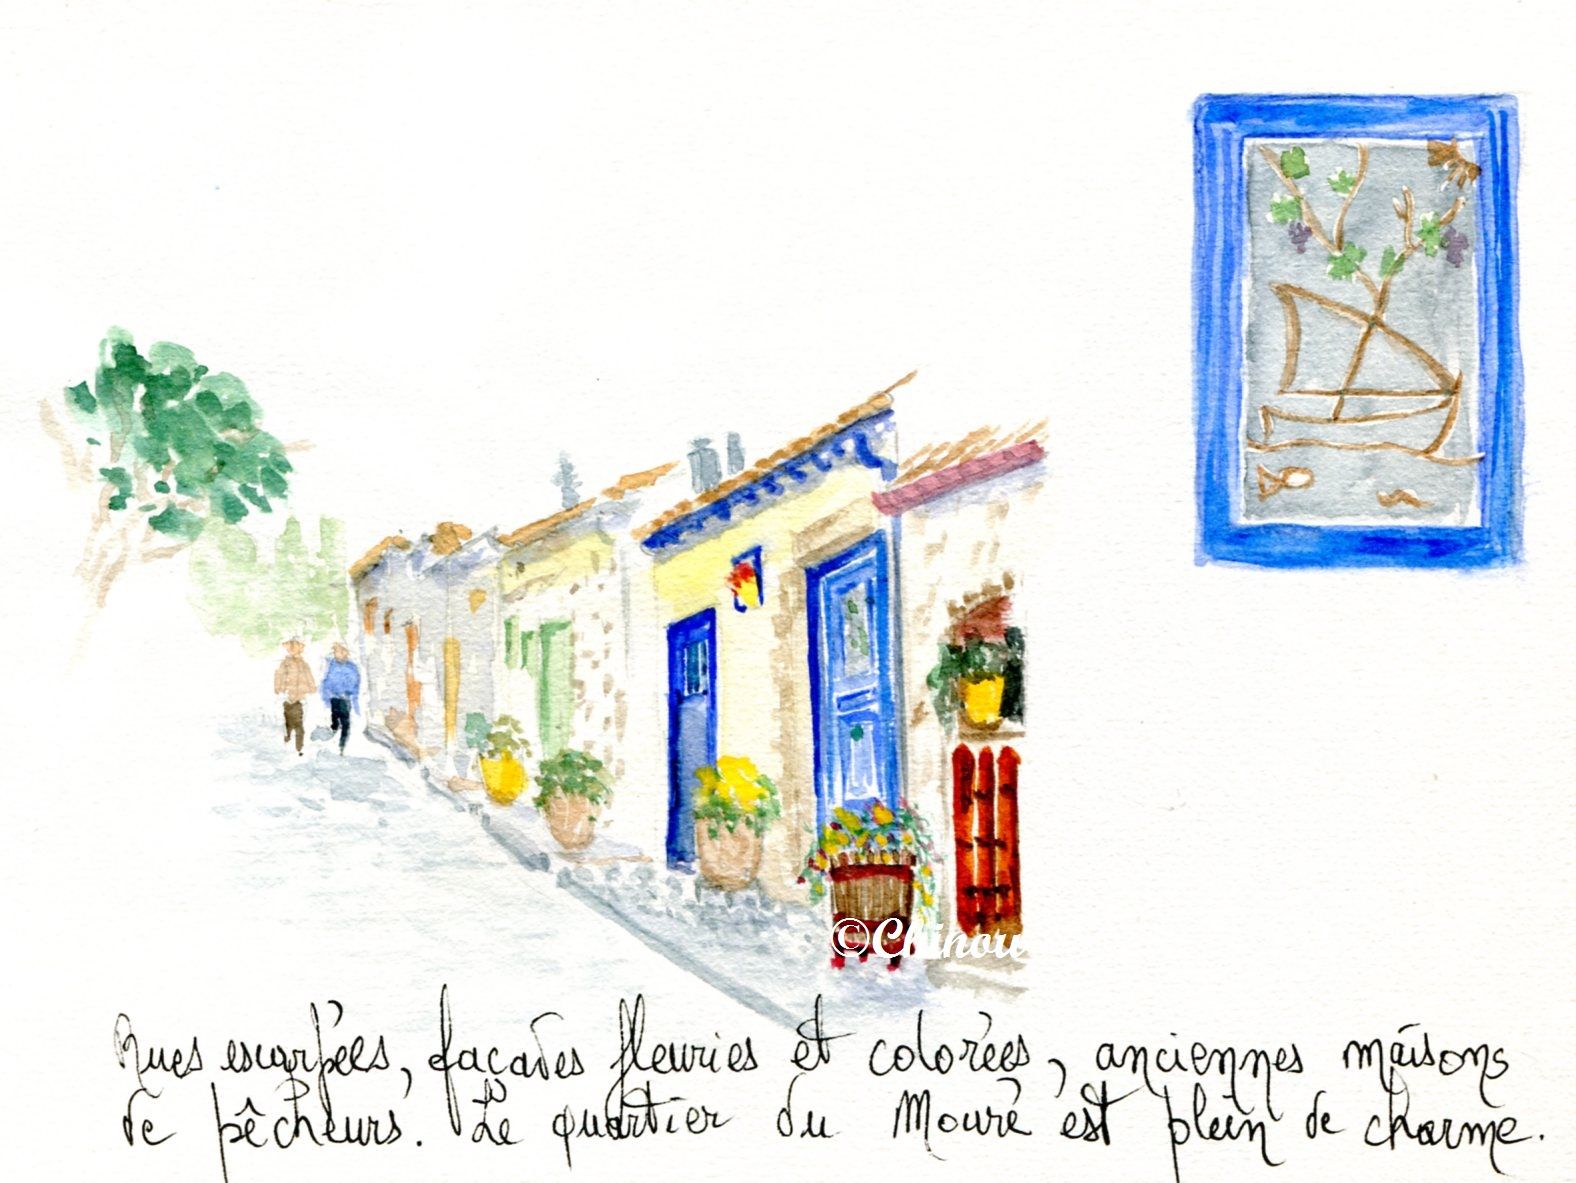 ©Chinou
Rues escarpées, façades fleuries et colorées, anciennes maisons
de pêcheurs. Le quartier du Mouré est plein de charme.